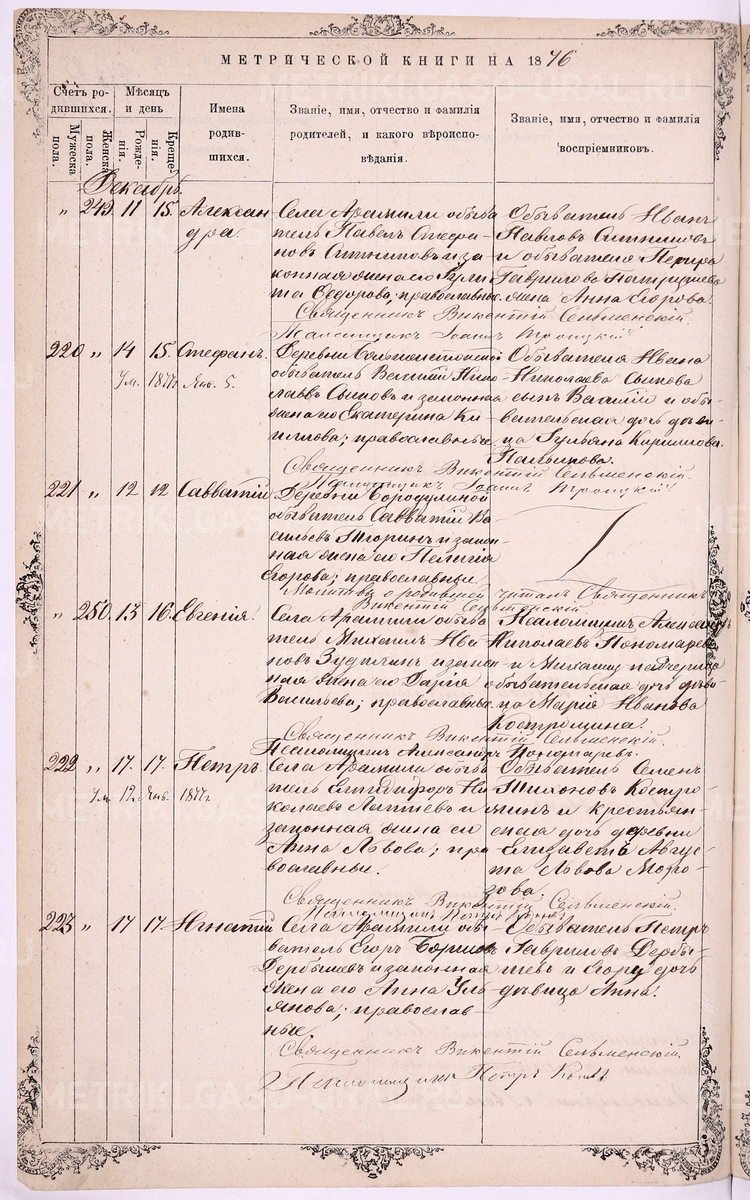 МЕТРИЧЕСКОЙ КНИГИ НА 1876
Счетъ родившихся.
Мужеска пола.
Женска пола.
Мѣсяцъ и день
Рожденія.
Крещенія.
Имена родившихся.
Званіе, имя, отчество и фамилія родителей, и какого вѣроисповѣданія.
Званіе, имя, отчество и фамилія воспріемниковъ.
Декабрь
" 249 11 15. Алексан
дра.
Села Арамили обыва
тель Павелъ Стефа-
новъ Ситниковъ и за
конная жена его
Федорова; православные.
Обыватель Иванъ
Павловъ Ситниковъ
и обывателя Петра
Гаврилова
жена Анна Егорова.
Священникъ Викентій Сельменскій.
Іоаннъ Троицкій
220 " 14 15. Стефанъ.
Ум. 1877 г. Янв. 5.
Деревни
обыватель Василій Нико-
лаевъ и законная
жена его Екатерина Ки-
рилова; православные
Обывателя Ивана
Николаева
сынъ Василій и обы-
вательская дочь дѣви-
ца Кирилова
Священникъ Викентій Сельменскій.
Іоаннъ Троицкій
221 " 12 12 Савватій
Деревни Бородулиной
обыватель Савватій Ва
сильевъ и закон-
ная жена его Пелагія
Егорова; православные
Молитву о родившей читалъ Священникъ
Викентій
" 250. 13 16. Евгенія.
Села Арамили обыва
тель Михаилъ Ива
новъ и закон
ная жена его Дарія
Васильева; православные.
Псаломщикъ Александръ
Николаевъ Пономаревъ
и
обывательская дочь дѣви
ца Марія Иванова
Костромина.
Священникъ Викентій Сельменскій.
Псаломщикъ Александръ Пономаревъ.
222 " 17. 17. Петръ.
Ум. 12. Янв. 1877 г.
Села Арамили обыва
тель Ни
колаевъ Лаптевъ и
законная жена его
Анна Львова; пра
вославные.
Обыватель Семенъ
Тихоновъ Костро-
минъ и крестьян-
ская дочь деревни
Елизаветъ Авгус-
та Львова Моро-
зова.
Священникъ Викентій Сельменскій.
223 " 17 17 Игнатій
Села Арамили обы-
ватель Егоръ Борисовъ
Дербышевъ и законная
жена его Анна Уль
янова; православ-
ные.
Обыватель Петръ
Гавриловъ Дербы-
шевъ и Егора дочь
дѣвица Анна.
Священникъ Викентій Сельменскій.
Псаломщикъ Петръ